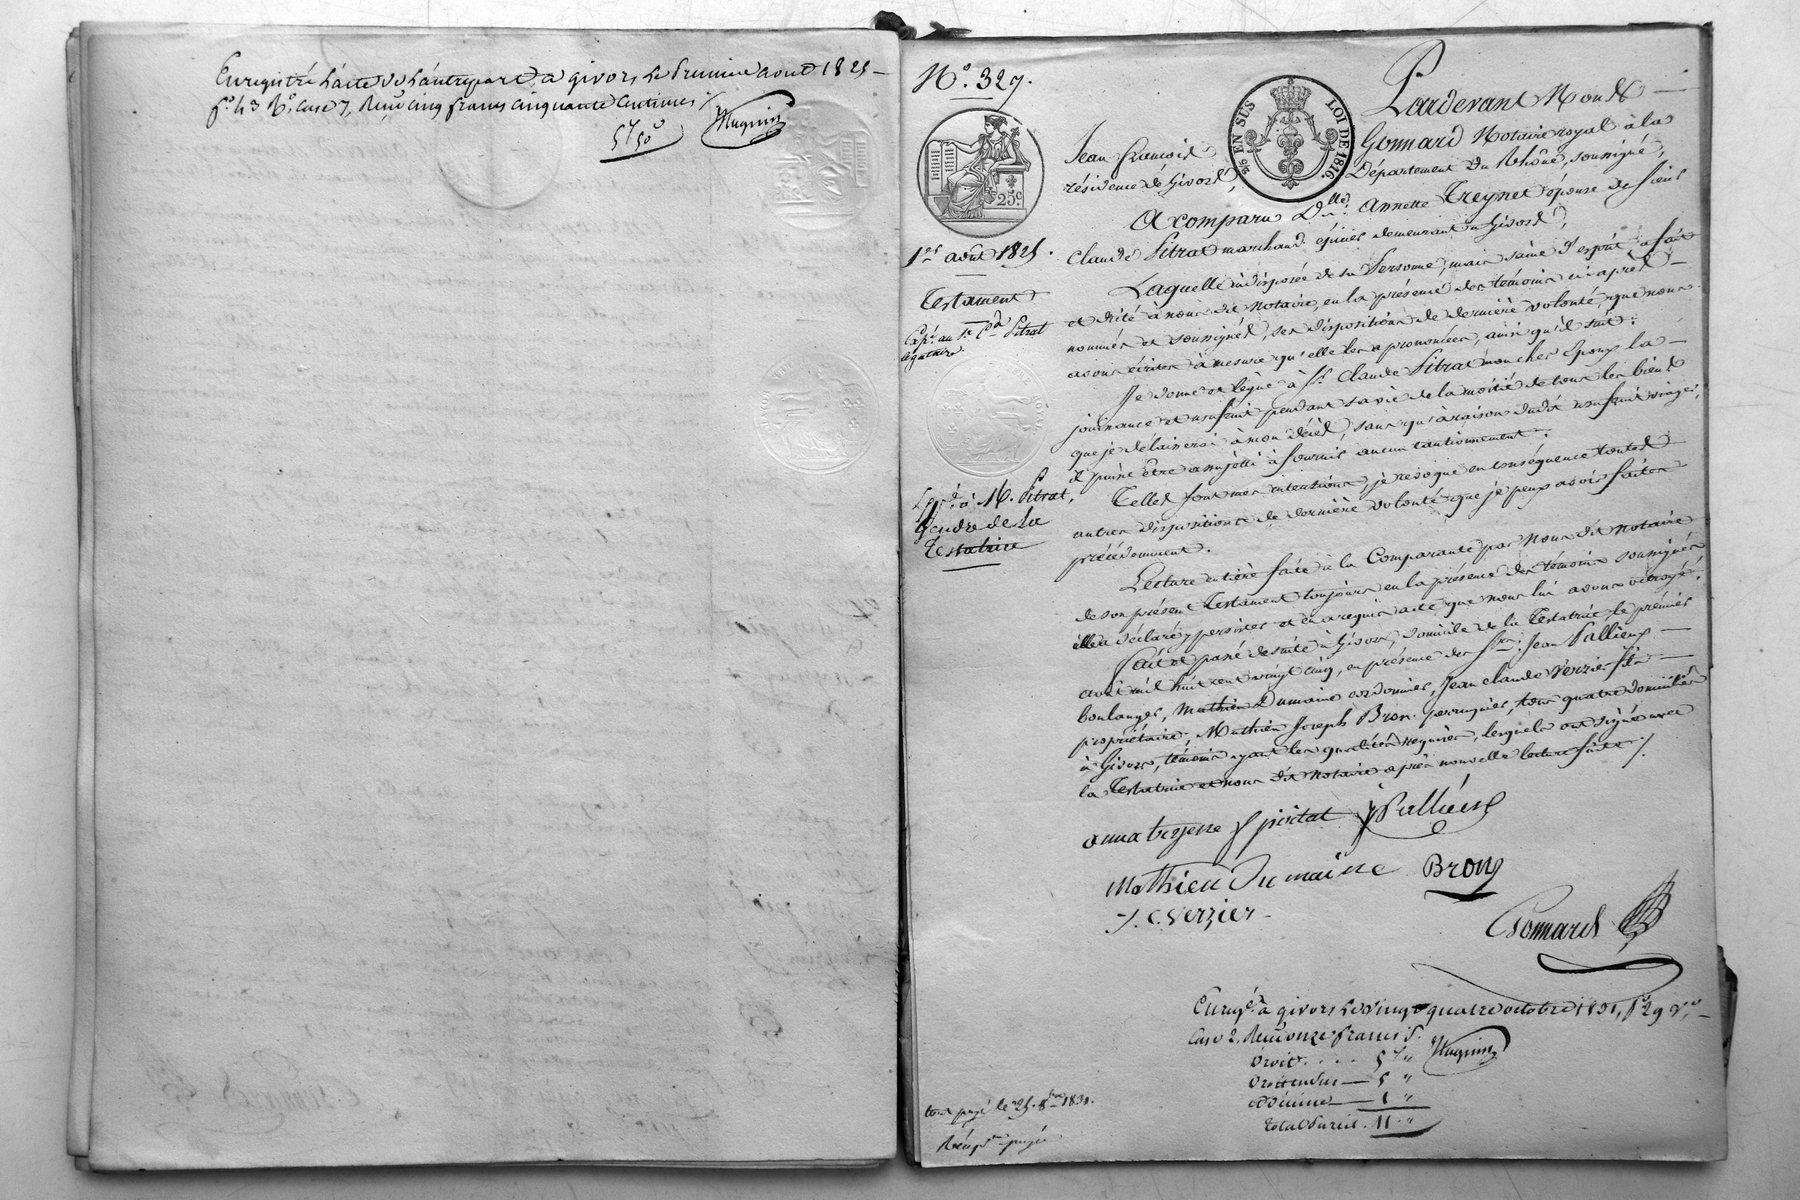 Enregistré l'acte de l'autre part à givors le Premier aout 1825 —
f.º 43 R.º case 7, Reçu cinq francs cinquante centimes /.
5f 50c
Huguin
Nº. 327.
25c
2/6 EN SUS LOI DE 1816.
1er aout 1825.
Testament
Exp.é au Sr. Cde Pitrat
légataire
Exp.é à M. Pitrat,
Gendre de La
Testatrice
Pardevant Nous Me —
Jean François Gonnard Notaire royal à la
résidence de Givors, Département du Rhône, soussigné,
A comparu Dlle. Annette Treynet épouse de sieur
Claude Pitrat marchand épicier demeurant à Givors,
Laquelle indisposée de sa Personne, mais saine d'esprit a fait
et dicté à nous dit Notaire, en la présence des témoins ci-après —
nommés et soussignés, ses dispositions de dernière volonté, que nous
avons écrites à mesure qu'elle les a prononcées, ainsi qu'il suit:
Je donne et lègue à Sr. Claude Pitrat mon cher Epoux la —
jouissance et usufruit pendant sa vie de la moitié de tous les biens
que je délaisserai à mon décès, sans qu'à raison dudit usufruit viager,
il puisse être assujetti à fournir aucun cautionnement.
Telles sont mes intentions, je révoque en conséquence toutes
autres dispositions de dernière volonté que je peux avoir faites
précédemment.
Lecture entière faite à la Comparante par Nous dit Notaire
de son présent Testament toujours en la présence des témoins soussignés
elle a déclaré y persister et en a requis acte que nous lui avons octroyé.
Fait et passé de suite à Givors, domicile de la Testatrice, le premier
aout mil huit cent vingt cinq, en présence des Srs. Jean Pallieux —
boulanger, Mathieu Dumaine cordonnier, Jean Claude Verzier fils —
propriétaire, Mathieu Joseph Bron perruquier, tous quatre domiciliés
à Givors, témoins ayant les qualités requises, lesquels ont signé avec
la Testatrice et nous dit Notaire après nouvelle lecture faite /.
anna treynne f pitrat JPallieux
Mathieu Dumaine Bron
J. C. Verzier
Gonnard
Enregé. à givors le vingt quatre octobre 1831, fº 29 vº, —
Case 2, Reçu onze francs S.
Huguin
Droit . . . . 5f "
Droit en sus — 5 "
Décime — 1 "
Total Pareil. 11. "
tout payé le 25. 8bre 1831.
Récépé. payé